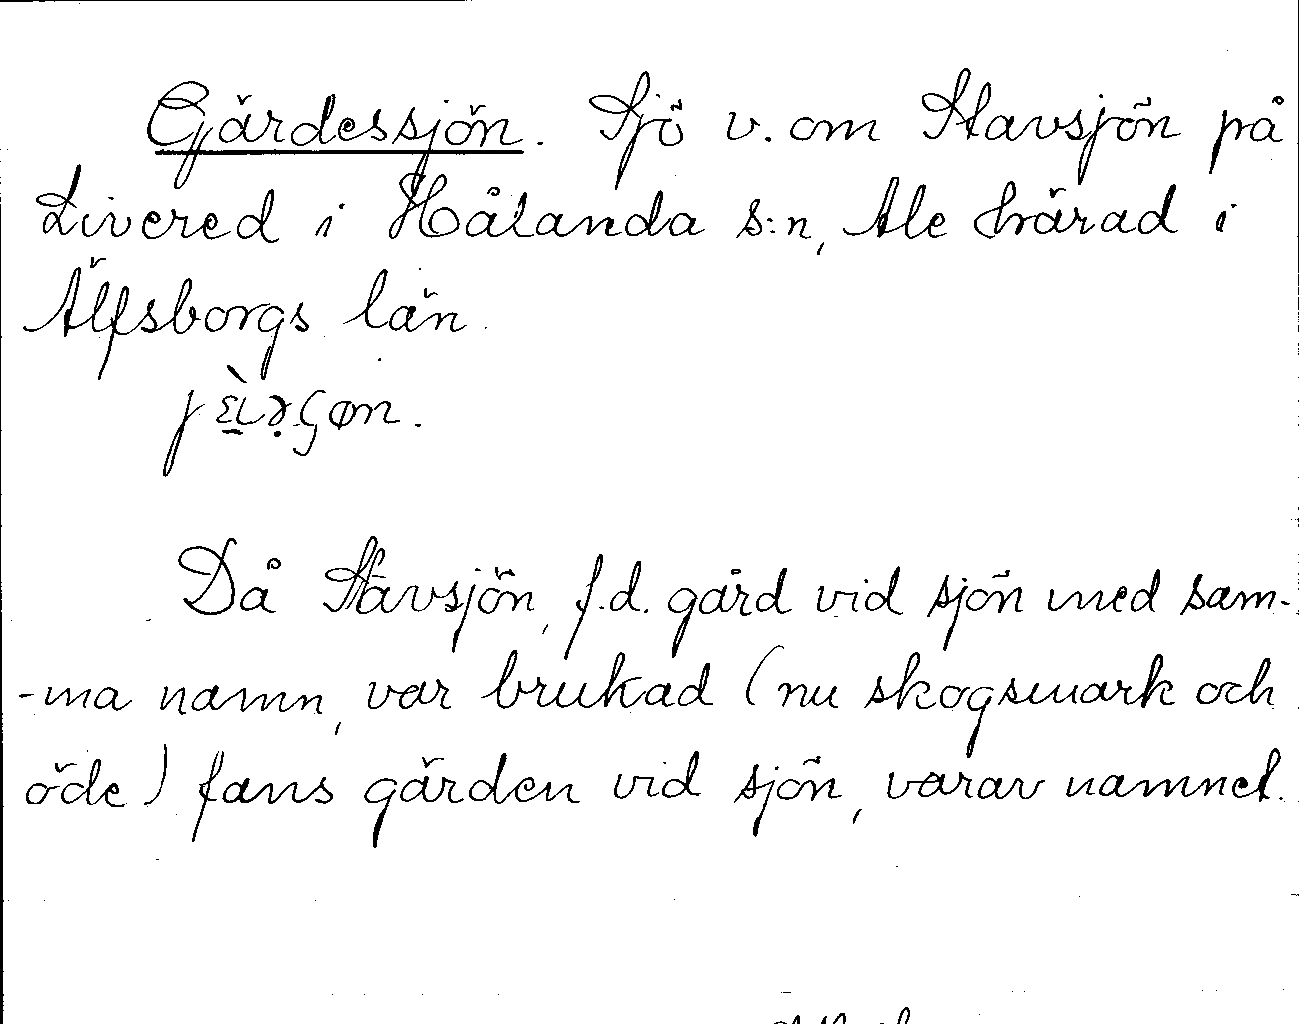 Gjärdessjön. Sjö v. om Stavsjön på
Livered i Hålanda s:n, Ale härad i
Älfsborgs län.
Då Stavsjön, f.d. gård vid sjön med sam-
-ma namn, var brukad (nu skogsmark och
öde) fans gärden vid sjön, varav namnet.